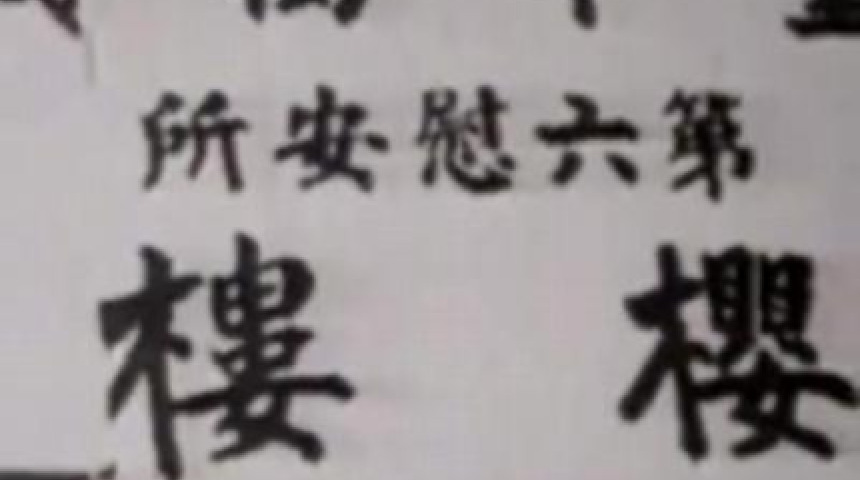 第六慰安所
櫻樓